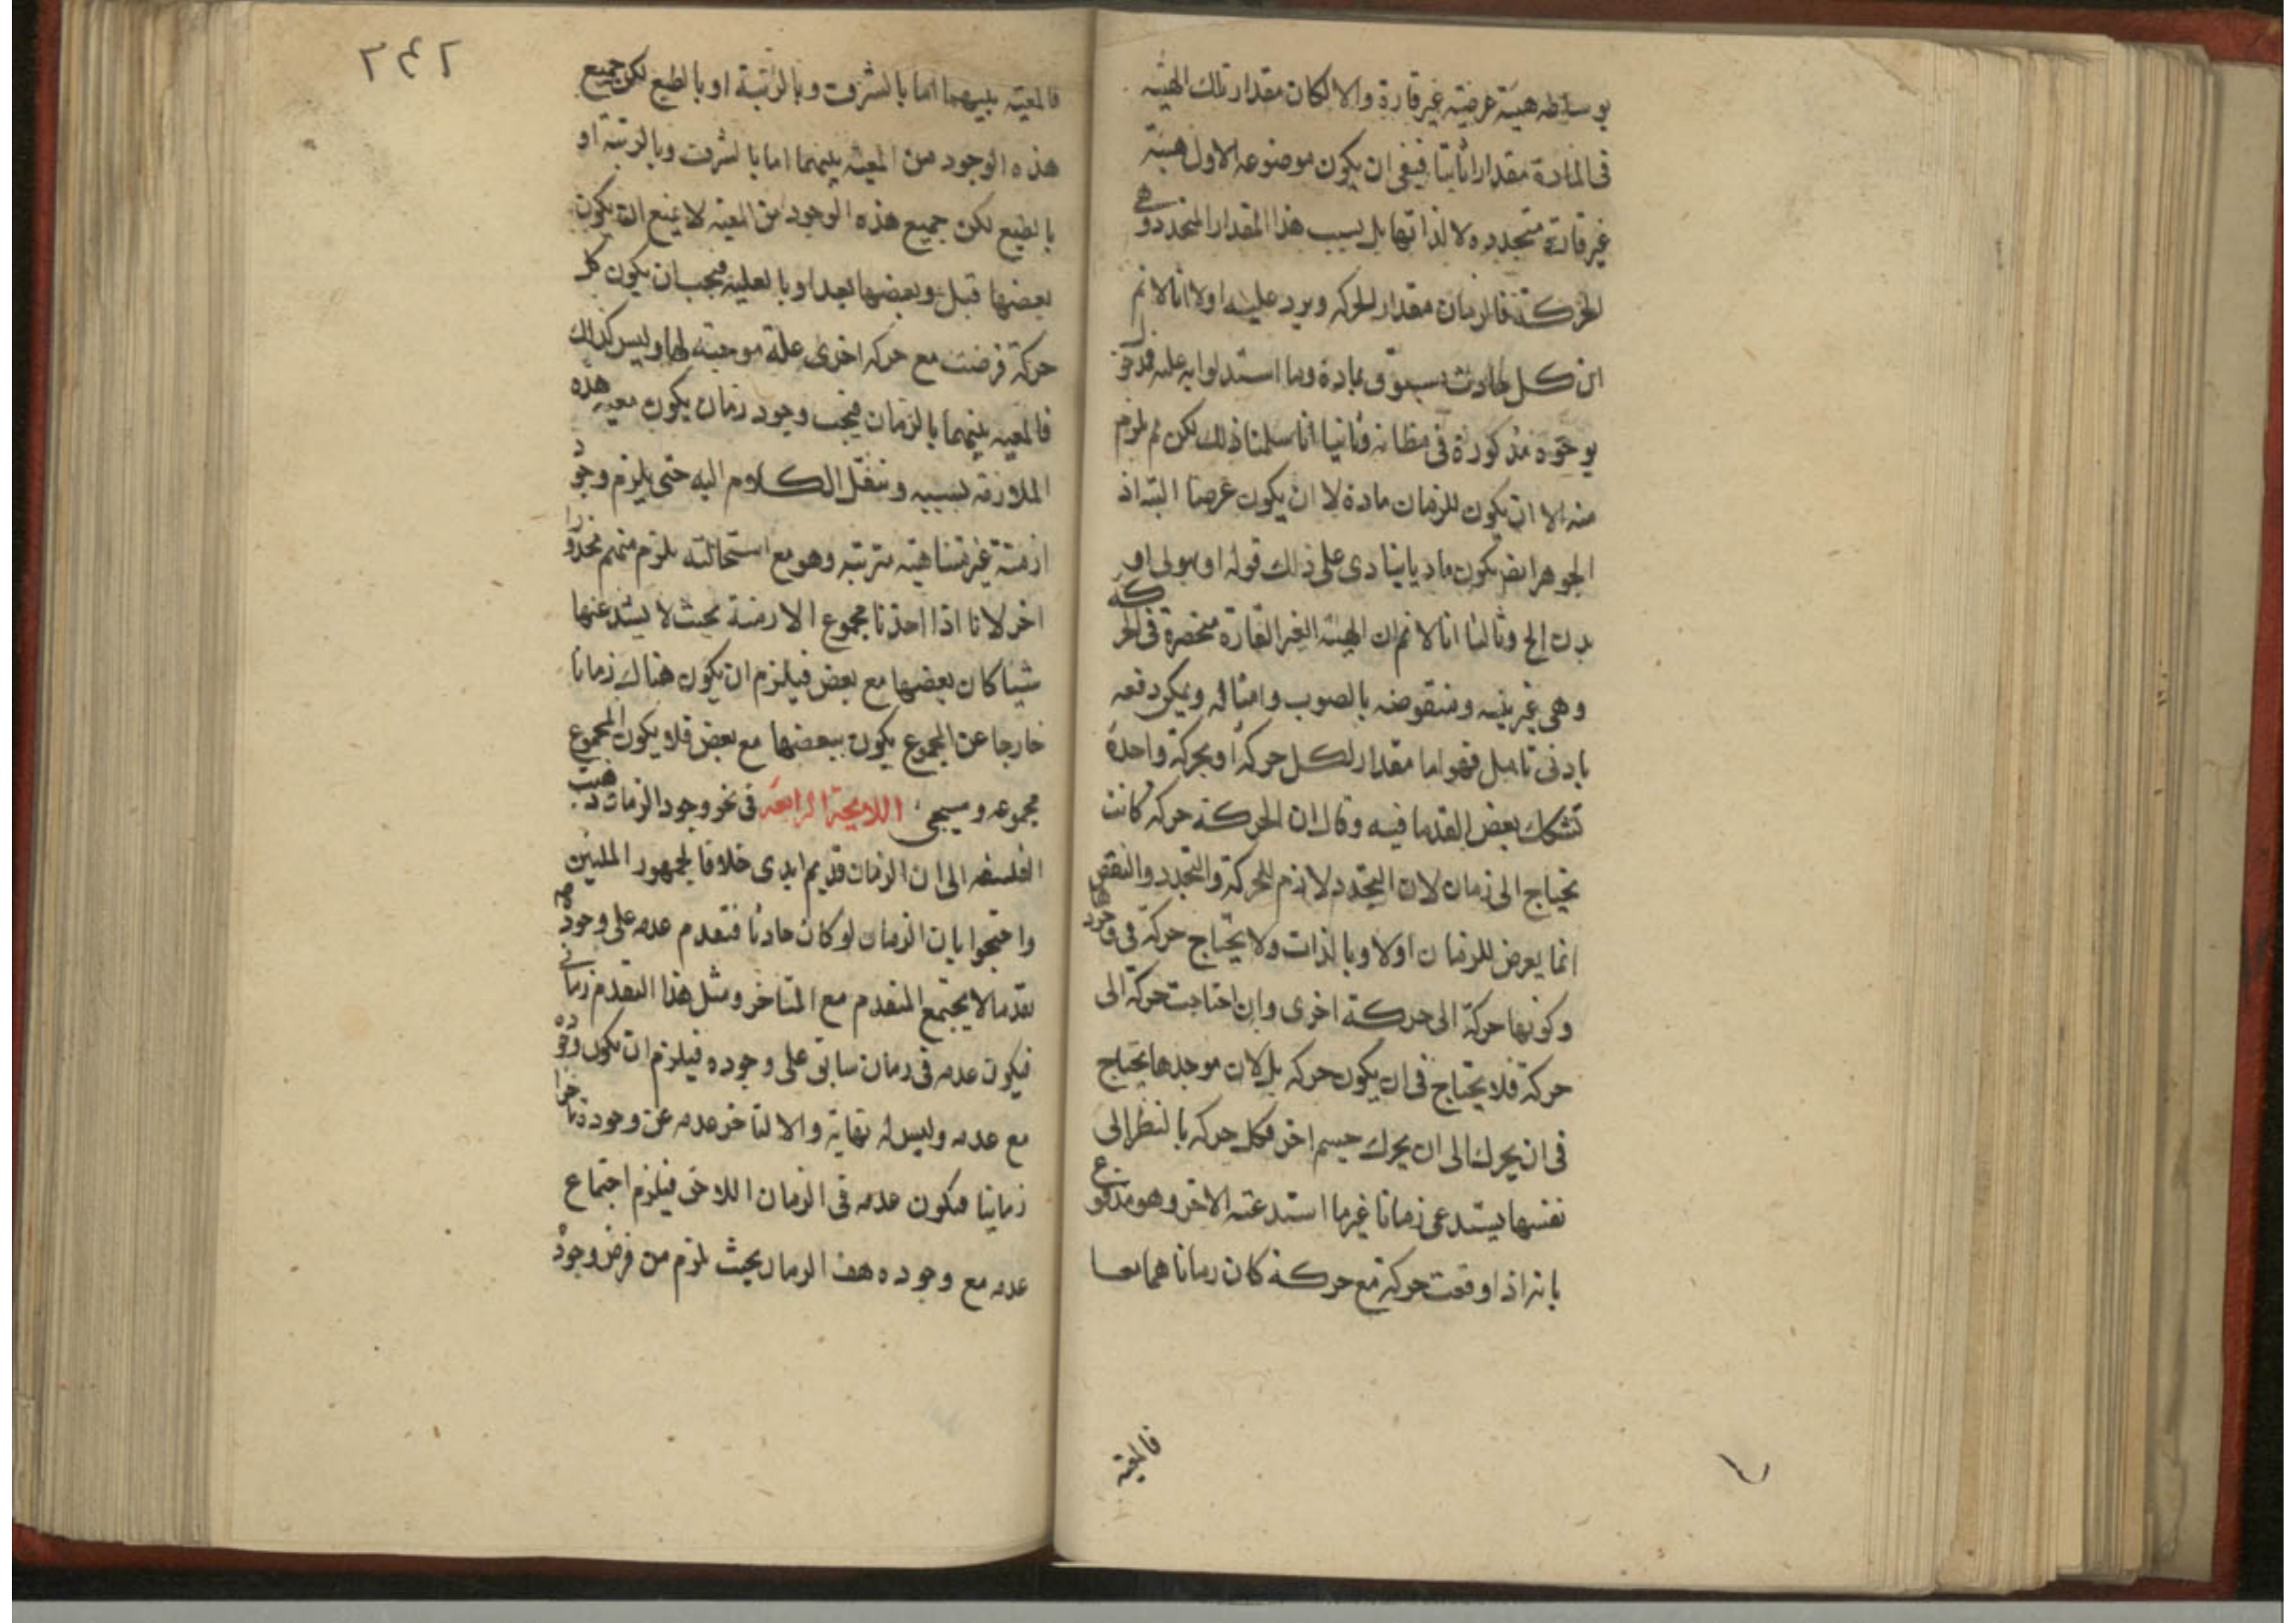 بوساطه هيئة عرضية غير قارة والا لكان مقدار تلك الهيئه
فى المادة مقدارا ثابتا فبقى ان يكون موضوعه الاول هيئة
غير قارة متجدده لا لذاتها بل بسبب هذا المقدار المتجدد وهى
الحركة فالزمان مقدار للحركه ويرد عليه اولا انا لا نم
ان كل حادث مسبوق بمادة وما استدلوا به عليه
بوجوه مذكورة فى مظانه وثانيا انا سلمنا ذلك لكن لم يلزم
منه الا ان يكون للزمان مادة لا ان يكون عرضا البته اذ
الجوهر ايضا يكون ماديا ينادى على ذلك قوله او هيولى او
بدن الخ وثالثا انا لا نم ان الهيئة الغير القارة منحصرة فى الحركه
وهى غير بينه ومنقوضه بالصوت وامثاله ويمكن دفعه
بادنى تامل فهو اما مقدار لكل حركة او بحركة واحدة
تشكك بعض القدما فيه وقال ان الحركة حركه كانت
تحتاج الى زمان لان التجدد لازم للحركة والتجدد والتقضى
انما يعرض للزمان اولا وبالذات ولا يحتاج حركة فى وجودها
وكونها حركة الى حركة اخرى وان احتاجت حركة الى
حركة فلا يحتاج فى ان يكون حركه بل لان موجدها يحتاج
فى ان يحرك الى ان يحرك جسم اخر فكل حركه بالنظر الى
نفسها يستدعى زمانا غير ما استدعته الاخر وهو مدفوع
بانه اذا وقعت حركة مع حركة كان زماناهما معا
فالمعية
٢٤٢
فالمعية بينهما اما بالشرف وبالرتبة او بالطبع لكن جميع
هذه الوجود من المعية بينهما اما بالشرف وبالرتبة او
بالطبع لكن جميع هذه الوجود من المعية لا يمنع ان يكون
بعضها قبل وبعضها بعد او بالعلية فيجب ان يكون كل
حركة فرضت مع حركه اخرى علة موجبة لها وليس كذلك
فالمعيه بينهما بالزمان فيجب وجود زمان يكون معيه هذه
الملازمة بسببه وننقل الكلام اليه حتى يلزم وجود
ازمنة غير متناهية مترتبه وهو مع استحالته يلزم منهم محذورا
اخر لانا اذا اخذنا مجموع الازمنة بحيث لا يشذ عنها
شيا كان بعضها مع بعض فيلزم ان يكون هناك زمانا
خارجا عن المجموع يكون ببعضها مع بعض فلا يكون المجموع
مجموعه وسيجى اللايحة الرابعة فى نحو وجود الزمان ذهبت
الفلسفه الى ان الزمان قديم ابدى خلافا لجمهور المليين
واحتجوا بان الزمان لو كان حادثا فتقدم عدمه على وجوده
تقدما لا يجتمع المتقدم مع المتاخر ومثل هذا التقدم زمانى
فيكون عدمه فى زمان سابق على وجوده فيلزم ان يكون وجوده
مع عدمه وليس له نهاية والا لتاخر عدمه عن وجوده تاخرا
زمانيا فيكون عدمه فى الزمان اللاحق فيلزم اجتماع
عدمه مع وجوده هف الزمان بحيث يلزم من فرض وجود